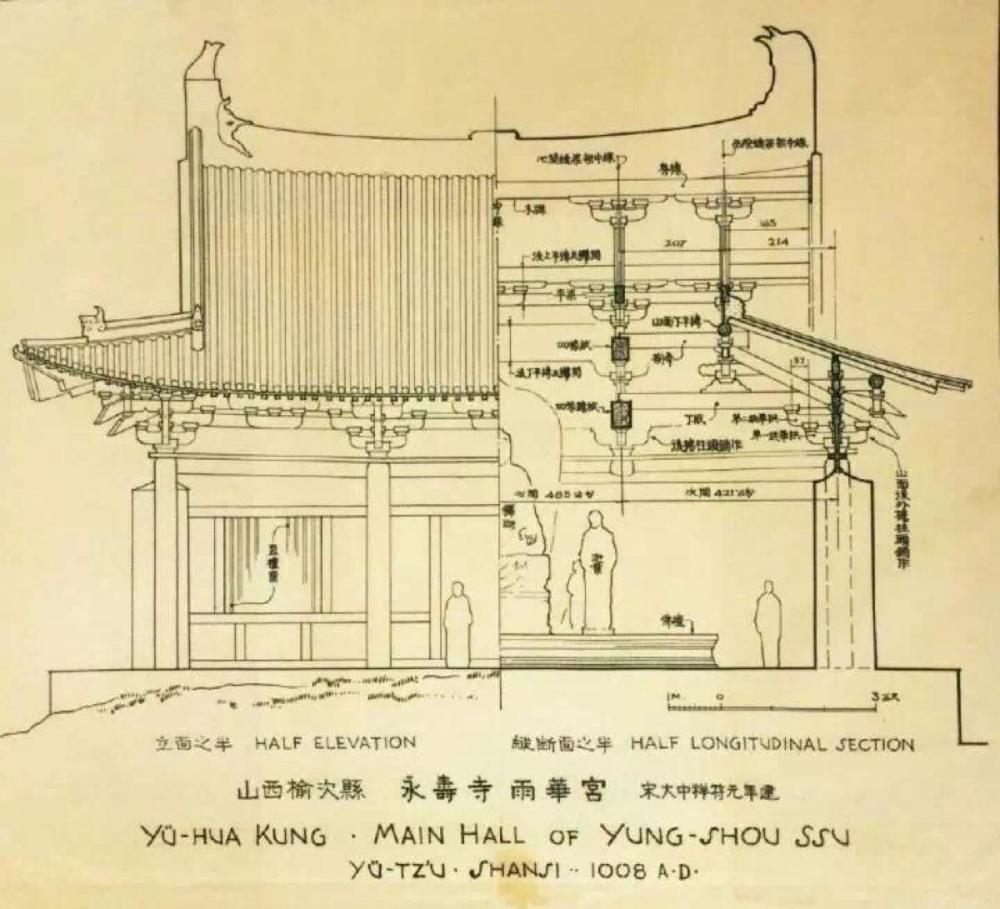 心間縫梁架中線
脊槫
中線
165
207
214
平梁
山面下平槫
四椽栿
37
丁栿
後檐柱頭鋪作
山面後外檐柱頭鋪作
心間 485公分
次間 421公分
直櫺窗
佛壇
1M. 0 3公尺
立面之半 HALF ELEVATION
縱斷面之半 HALF LONGITUDINAL SECTION
山西榆次縣 永壽寺雨華宮 宋大中祥符元年建
YÜ-HUA KUNG · MAIN HALL OF YUNG-SHOU SSU
YÜ-TZ'U · SHANSI ·· 1008 A·D·